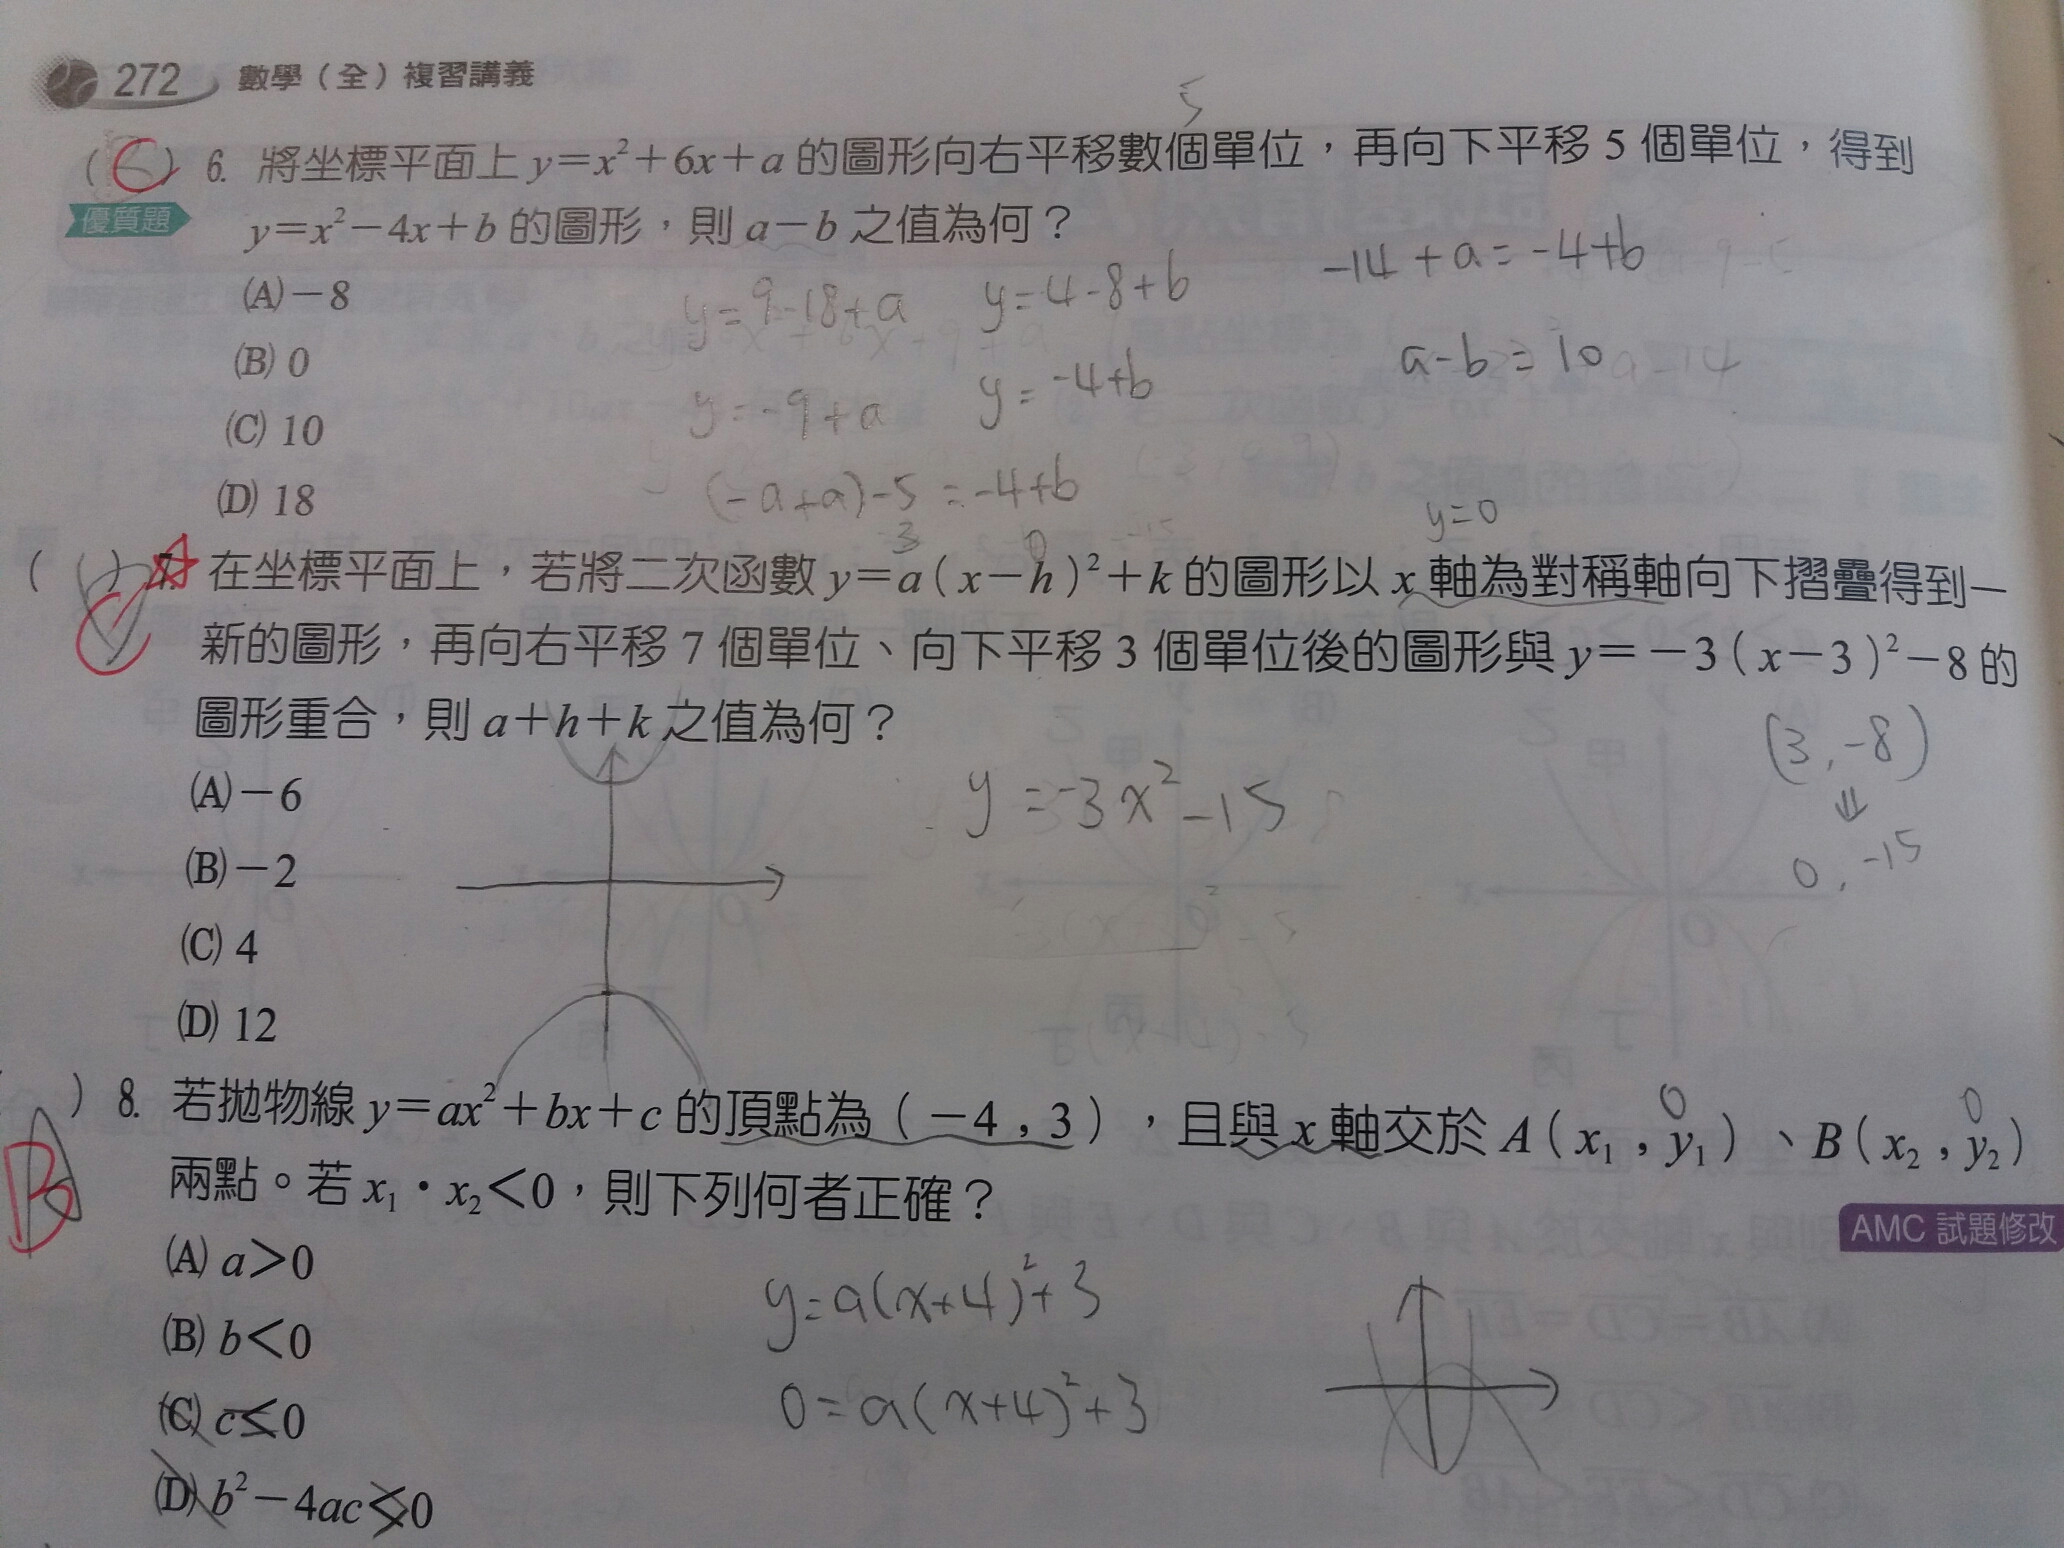 272 數學（全）複習講義
5
( C ) 6. 將坐標平面上 y=x²+6x+a 的圖形向右平移數個單位，再向下平移 5 個單位，得到
優質題 y=x²-4x+b 的圖形，則 a-b 之值為何？
(A) -8
(B) 0
(C) 10
(D) 18
y=9-18+a
y=4-8+b
-14+a=-4+b
y=-9+a
y=-4+b
a-b=10
(-9+a)-5=-4+b
3 0
y=0
( ) 7. 在坐標平面上，若將二次函數 y=a(x-h)²+k 的圖形以 x 軸為對稱軸向下摺疊得到一
C 新的圖形，再向右平移 7 個單位、向下平移 3 個單位後的圖形與 y=-3(x-3)²-8 的
圖形重合，則 a+h+k 之值為何？
(A) -6
(B) -2
(C) 4
(D) 12
y=-3x²-15
(3,-8)
⇓
0,-15
) 8. 若拋物線 y=ax²+bx+c 的頂點為（-4，3），且與 x 軸交於 A(x₁，y₁)、B(x₂，y₂)
0 0
B 兩點。若 x₁·x₂<0，則下列何者正確？
AMC 試題修改
(A) a>0
(B) b<0
(C) c≤0
(D) b²-4ac≤0
y=a(x+4)²+3
0=a(x+4)²+3